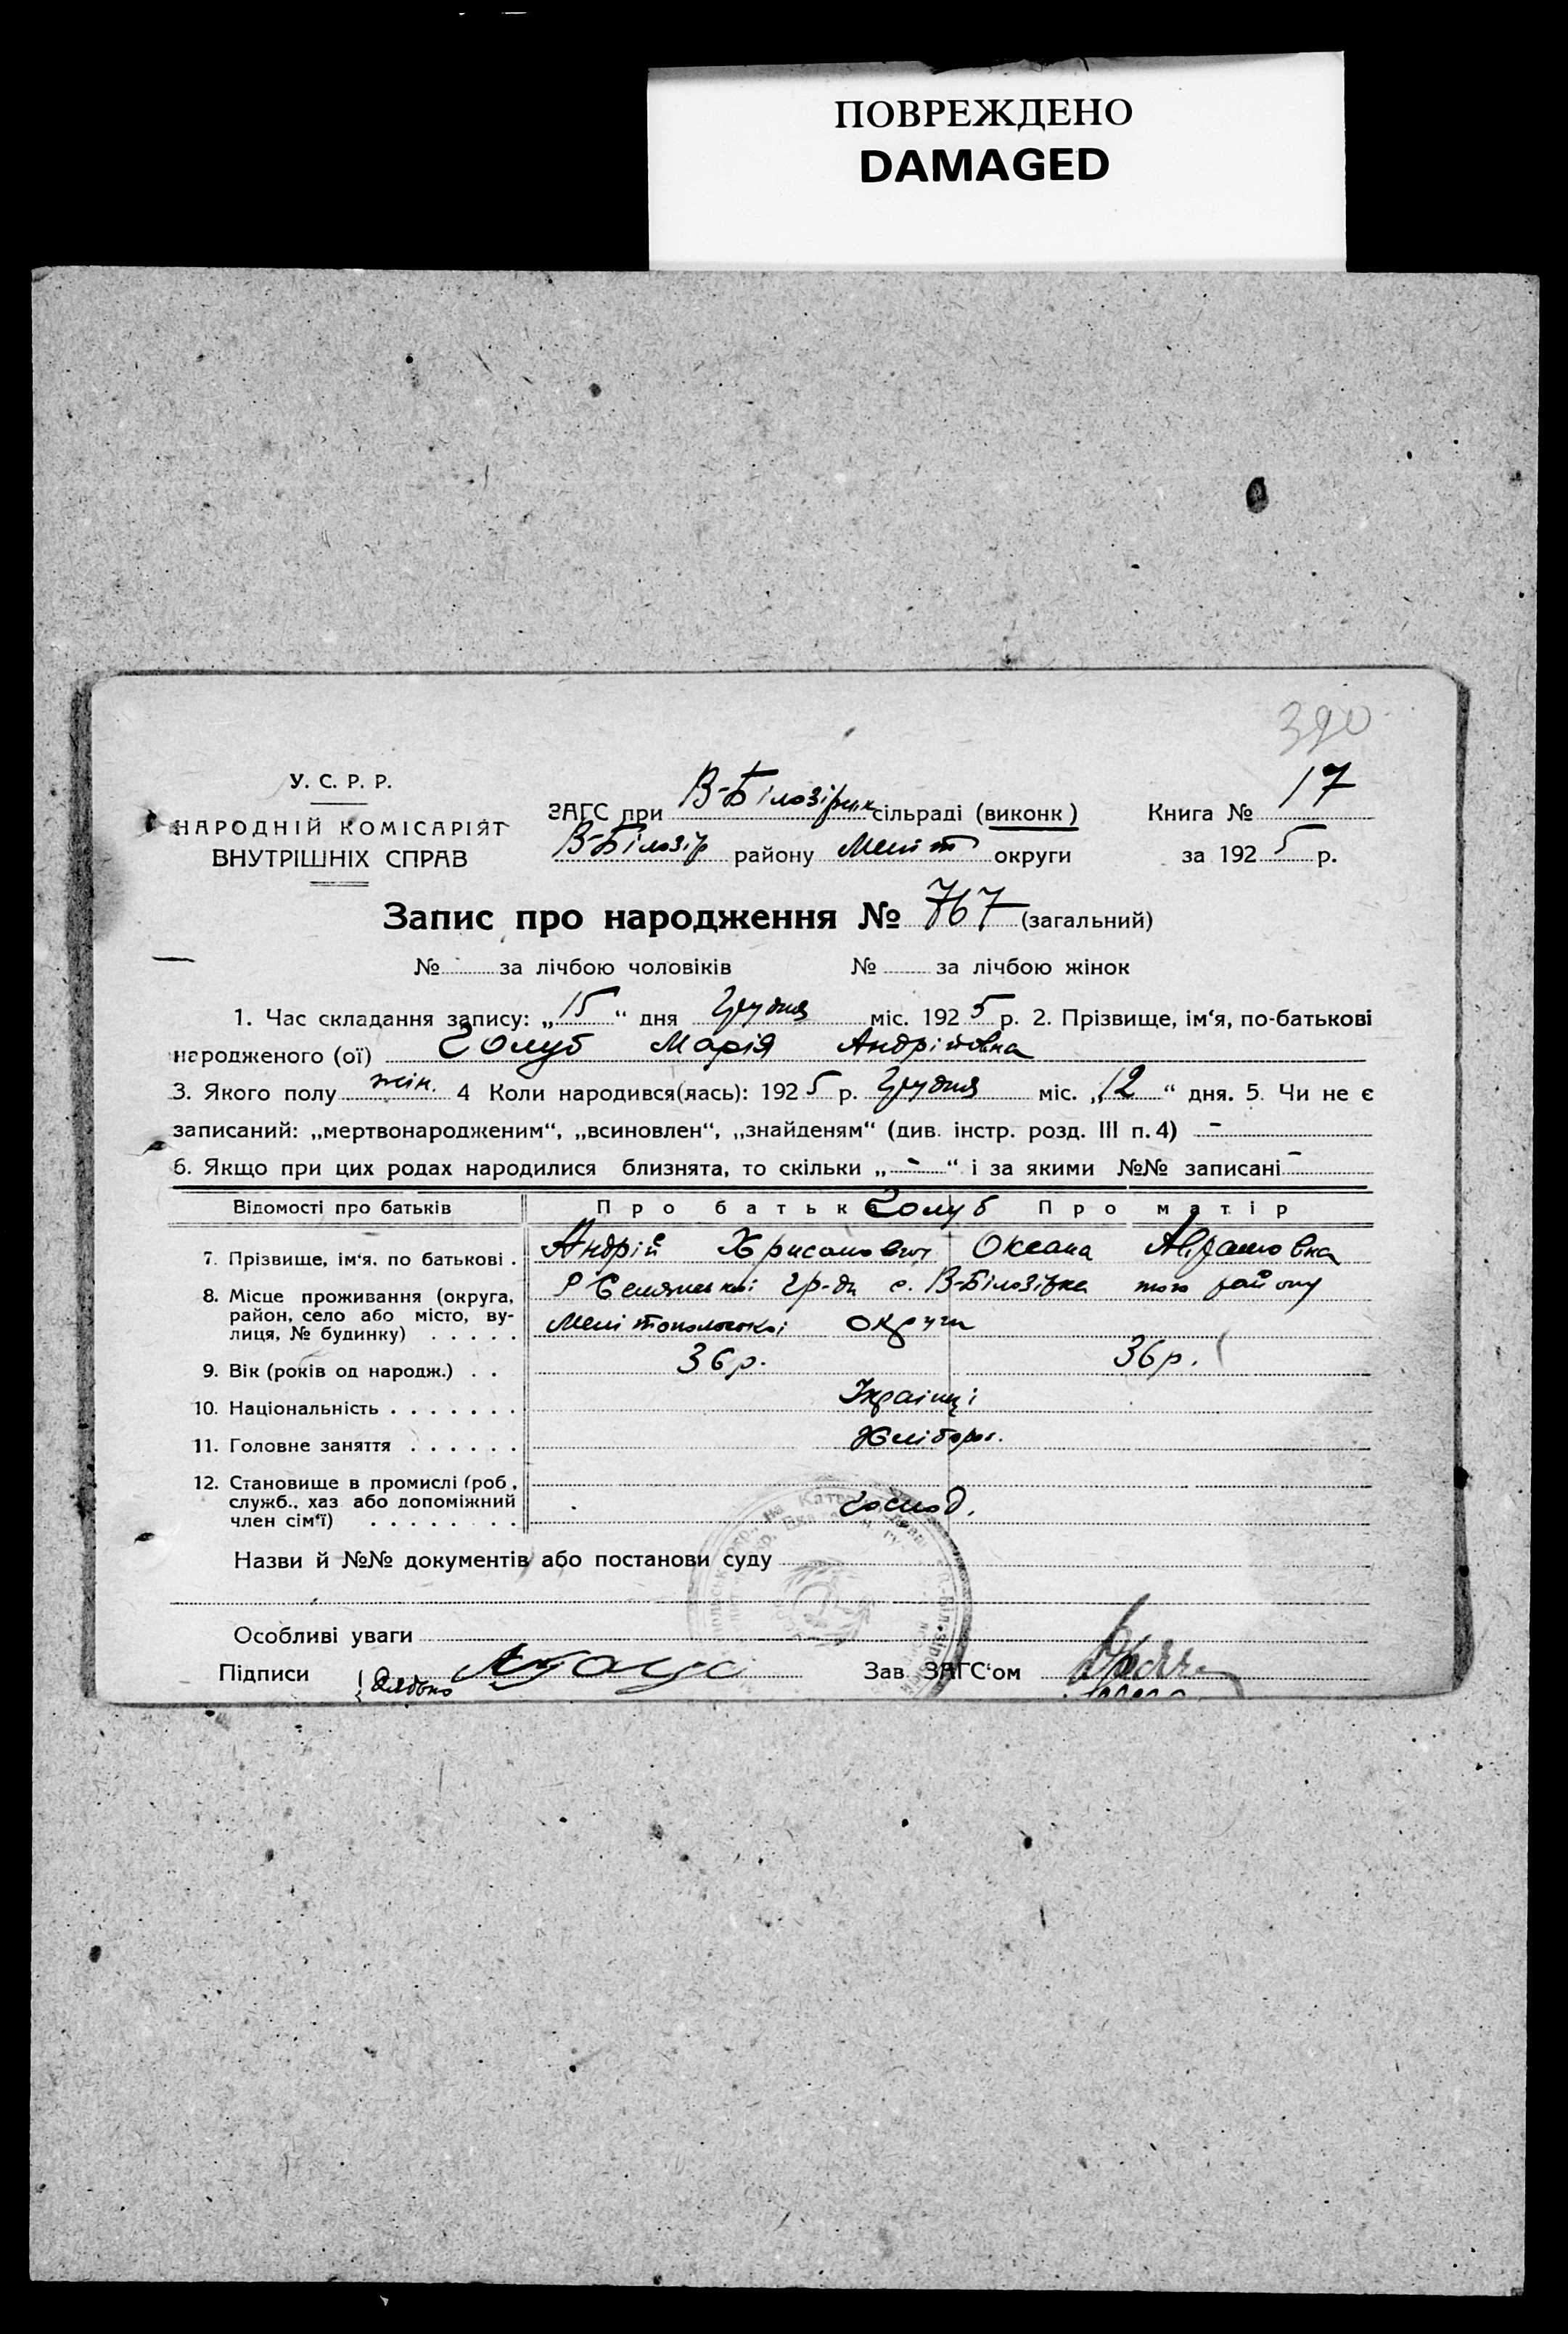 ПОВРЕЖДЕНО
DAMAGED
390
У. С. Р. Р.
НАРОДНІЙ КОМІСАРІЯТ
ВНУТРІШНІХ СПРАВ
ЗАГС при В-Білозірик сільраді (виконк)
В-Білозір району Меліт округи
Книга № 17
за 1925 р.
Запис про народження № 767 (загальний)
№ за лічбою чоловіків № за лічбою жінок
1. Час складання запису: „15“ дня Грудня міс. 1925 р. 2. Прізвище, ім‘я, по-батькові
народженого (ої) Голуб Марія Андрійовна
3. Якого полу жін. 4 Коли народився(лась): 1925 р. Грудня міс. „12“ дня. 5. Чи не є
записаний: „мертвонародженим“, „всиновлен“, „знайденям“ (див. інстр. розд. III п. 4) -
6. Якщо при цих родах народилися близнята, то скільки „-“ і за якими №№ записані -
Відомості про батьків Про батька Голуб Про матір
7. Прізвище, ім‘я, по батькові . Андрій Оксана
8. Місце проживання (округа, район, село або місто, вулиця, № будинку) . . . . . гр-ди с. В-Білозірка того району
Мелітопольської округи
9. Вік (років од народж.) . . 36 р. 36 р.
10. Національність . . . . . . . Українці
11. Головне заняття . . . . . . Хлібороб.
12. Становище в промислі (роб, служб., хаз або допоміжний член сім‘ї) . . . . . . . господ.
Назви й №№ документів або постанови суду
Особливі уваги
Підписи Зав. ЗАГС‘ом